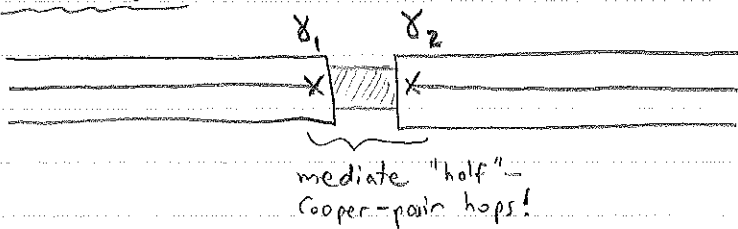 γ₁ γ₂
x x
mediate "half"-
Cooper-pair hops!